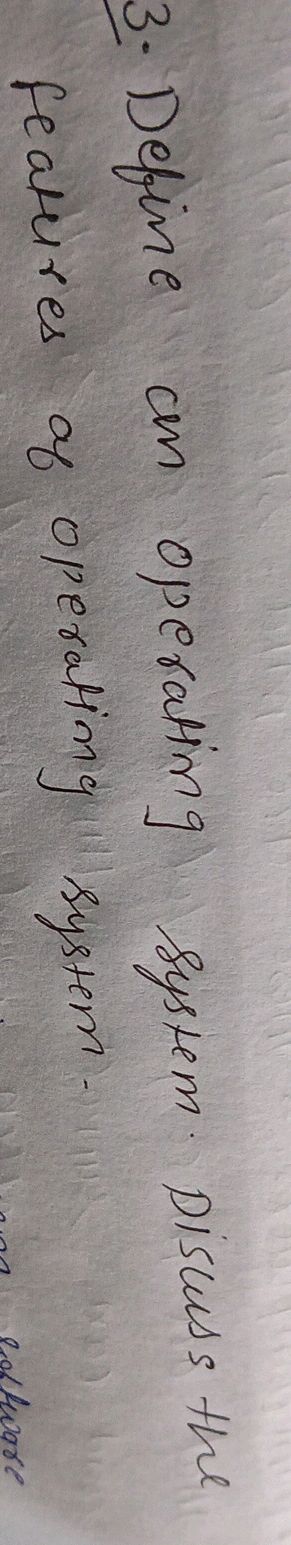 3. Define an operating system. Discuss the
features of operating system.
software